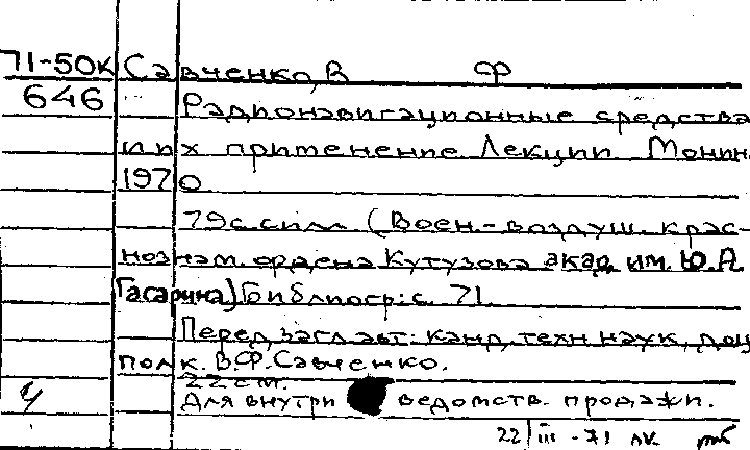 71-50к Савченко, В Ф
646 Радионавигационные средства
и их применение Лекции Монин
1970
79 с с илл (Воен-воздуш. крас-
нознам. ордена Кутузова акад им. Ю.А
Гагарина) Библиогр: с. 71
Перед загл авт: канд. техн наук, доц
полк. В.Ф. Савченко.
22 см.
Для внутри ведомств. продажи.
22/III -71